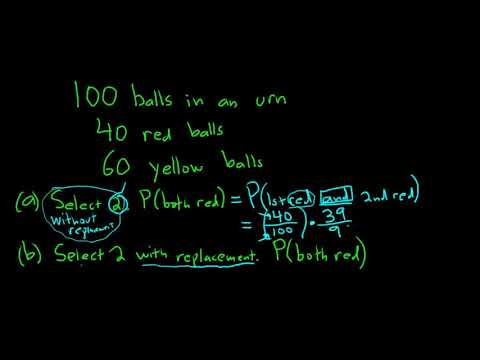 100 balls in an urn
40 red balls
60 yellow balls
(a) Select 2. P(both red) = P(1st red and 2nd red)
without replacement
= (40/100) · 39/9
(b) Select 2 with replacement. P(both red)